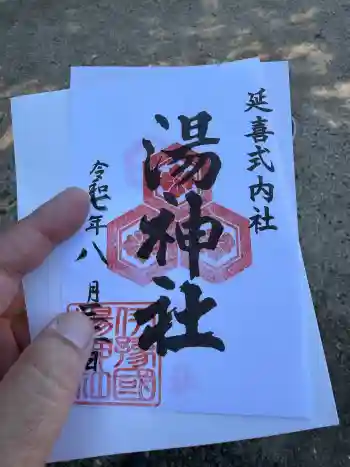 延喜式内社
湯神社
令和七年八月
伊豫國
湯神社